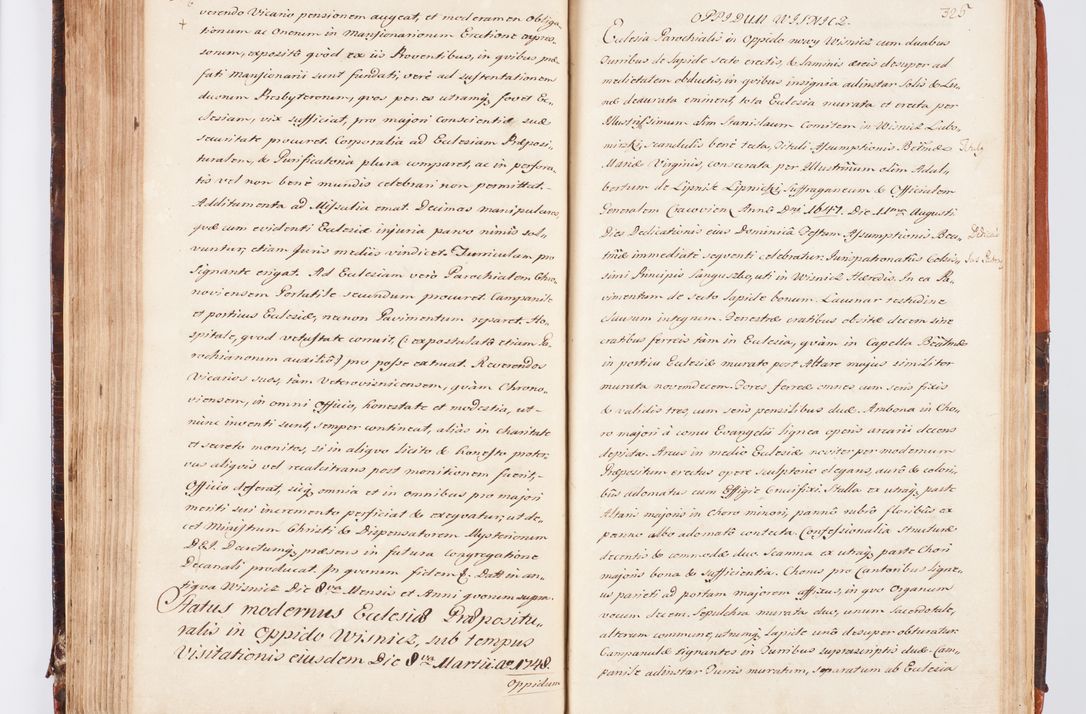 verendo Vicario pensionem augeat, et moderamen obliga
tionum ac Onerum in Mansionariorum Erectione expres
sorum, exposito quòd ex iis Proventibus, in quibus præ
fati Mansionarii sunt fundati, verè ad sustentationem
duorum Presbyterorum, quos penes utramq, fovet Ec-
clesiam, vix sufficiat, pro majori Conscientiæ suæ
securitate procuret. Corporalia ad Ecclesiam Præposi-
turalem, & Purificatoria plura comparet, ac in perfora
tis vel non benè mundis celebrari non permittat.
Additamenta ad Missalia emat. Decimas manipulares,
quæ cum evidenti Ecclesiæ injuria parvo nimis sol-
vuntur, etiam Juris mediis vindicet. Turriculam pro
Signante erigat. Ad Ecclesiam verò Parochialem Chro
noviensem Pertutile secundum procuret. Campanile
et porticus Ecclesiæ, necnon Pavimentum reparet. Ho-
spitale, quod vetustate corruit, (: expostulato etiam Pa
rochianorum auxilio:) pro posse extruat. Reverendos
Vicarios suos, tàm Veterovisnicensem, quàm Chrono-
viensem, in omni Officio, honestate et modestia, ut-
nunc inventi sunt, semper contineat, aliàs in charitate
et secreto monitos, si in aliquo licito & honesto proter-
vus aliquis vel recalcitrans post monitionem fuerit,
Officio deferat, sicq, omnia et in omnibus pro majori
meriti sui incremento perficiat & exequatur, ut de-
cet Ministrum Christi & Dispensatorem Mysteriorum
DEI. Decretumq, præsens in futura Congregatione
Decanali producat. In quorum fidem &. Datt in an-
tiqua Wisnicz Die 8va Mensis et Anni quorum supra.
Status modernus Ecclesiæ Præpositu-
ralis in Oppido Wisnicz, sub tempus
Visitationis ejusdem Die 8va Martii Ao 1748.
Oppidum
325
OPPIDUM WISNICZ.
Ecclesia Parochialis in Oppido nowy Wisnicz cum duabus
Turribus de lapide secto erectis, & laminis æreis desuper ad
medietatem obductis, in quibus insignia adinstar Solis & Lu-
næ deaurata eminent, tota Ecclesia murata et erecta per
Illustrissimum olim Stanislaum Comitem in Wisnicz Lubo-
mirski, scandulis benè tecta, Tituli Assumptionis Beatmæ
Titulq
Mariæ Virginis, consecrata per Illustrmum olim Adal-
bertum de Lipnik Lipnicki, Suffraganeum & Officialem
Generalem Cracovien Anno Dni 1647. Die 11ma Augusti.
Dies Dedicationis ejus Dominica Festum Assumptionis Bea-
tmæ immediatè sequenti celebratur. Jurispatronatus Celsis-
simi Principis Sanguszko, uti in Wisnicz Hæredis. In ea Pa-
vimentum de secto lapide bonum. Lacunar testudine
clausum integrum. Fenestræ cratibus obsitæ decem sine
cratibus ferreis tàm in Ecclesia, quàm in Capella Beatmæ
in porticu Ecclesiæ murato post Altare majus similiter
murata novemdecem. Fores ferreæ omnes cum seris fixis
& validis tres, cum seris pensilibus duæ. Ambona in Cho-
ro majori à cornu Evangelii lignea operis arcarii decens
depicta. Arcus in medio Ecclesiæ noviter per modernum
Præpositum erectus opere sculptorio elegans, auro & colori-
bus adornatus cum Effigie Crucifixi. Stalla ex utraq, parte
Altaris majoris in Choro minori, panno rubro floribus ex
panno albo adornato contecta. Confessionalia structuræ
decentis & commodæ duo. Scamna ex utraq, parte Chori
majoris bona & sufficientia. Chorus pro Cantoribus ligne-
us parieti ad portam majorem affixus, in quo Organum
vocum decem. Sepulchra murata duo, unum Sacerdotale,
alterum commune, utrumq, lapide uno desuper obturatur.
Campanulæ Signantes in Turribus suprascriptis duæ. Cam-
panile adinstar Turris muratum, separatum ab Ecclesia